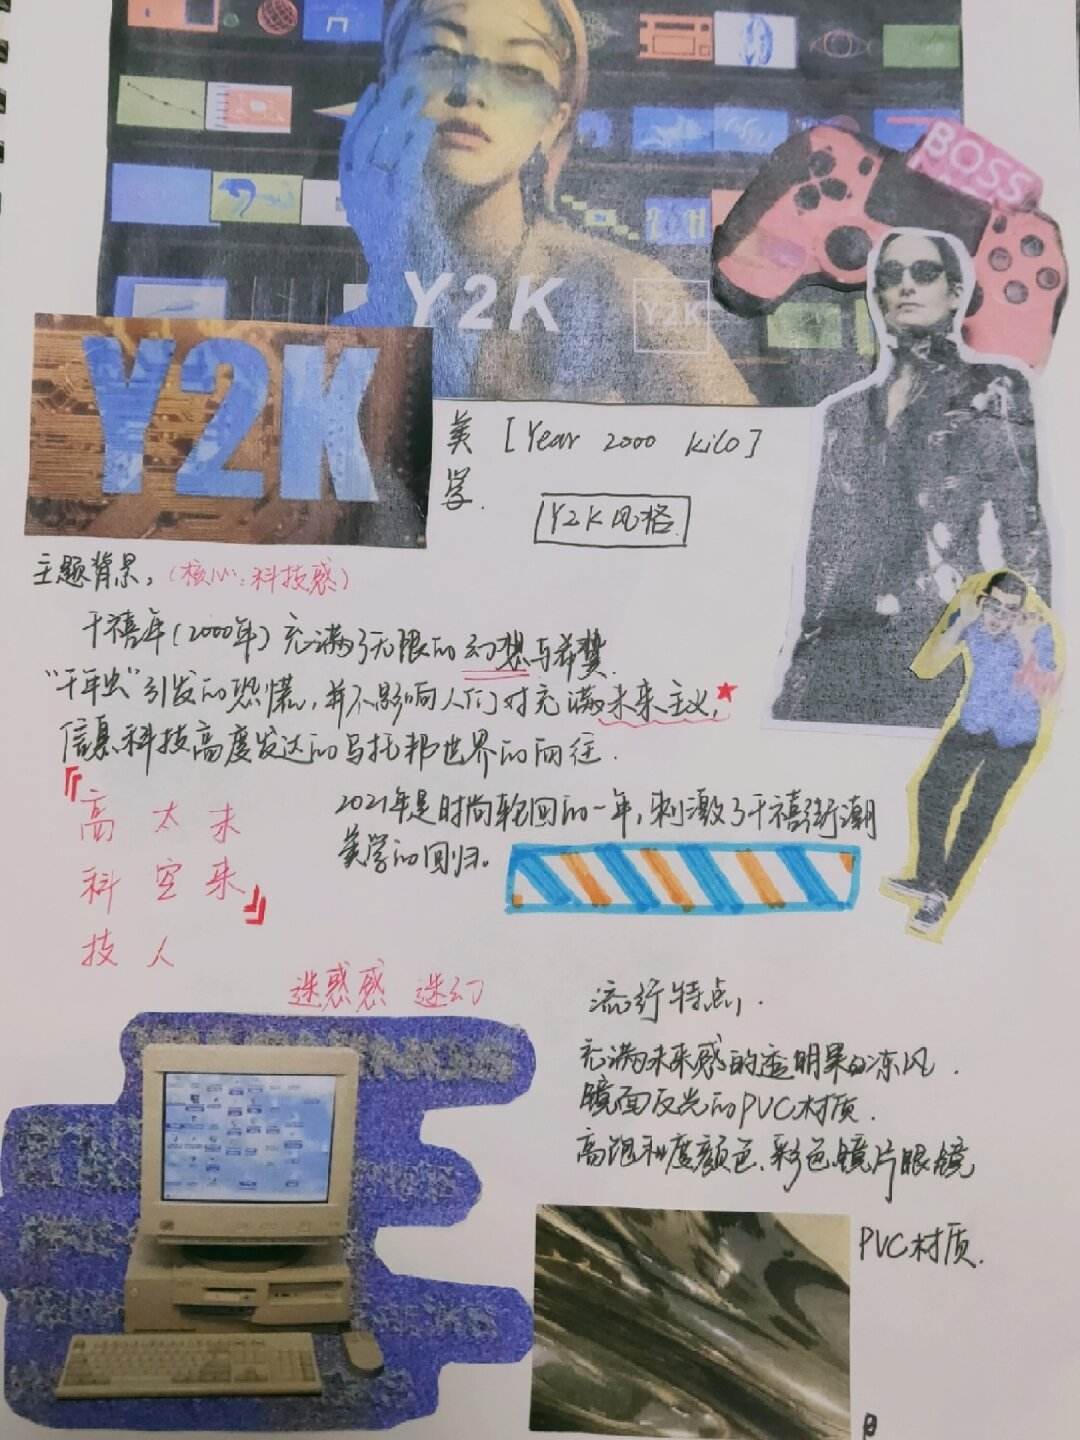 BOSS
Y2K
Y2K
Y2K
美学.
[Year 2000 kilo]
Y2K风格.
主题背景, (核心:科技感)
千禧年(2000年)充满了无限的幻想与希冀.
"千年虫"引发的恐慌,并不影响人们对充满未来主义,
信息科技高度发达的乌托邦世界的向往.
『高科技
太空人
未来』
2021年是时尚轮回的一年,刺激了千禧街潮
美学的回归。
迷惑感 迷幻
流行特点,.
充满未来感的透明果冻风.
镜面反光的PVC材质.
高饱和度颜色.彩色镜片眼镜
PVC材质.